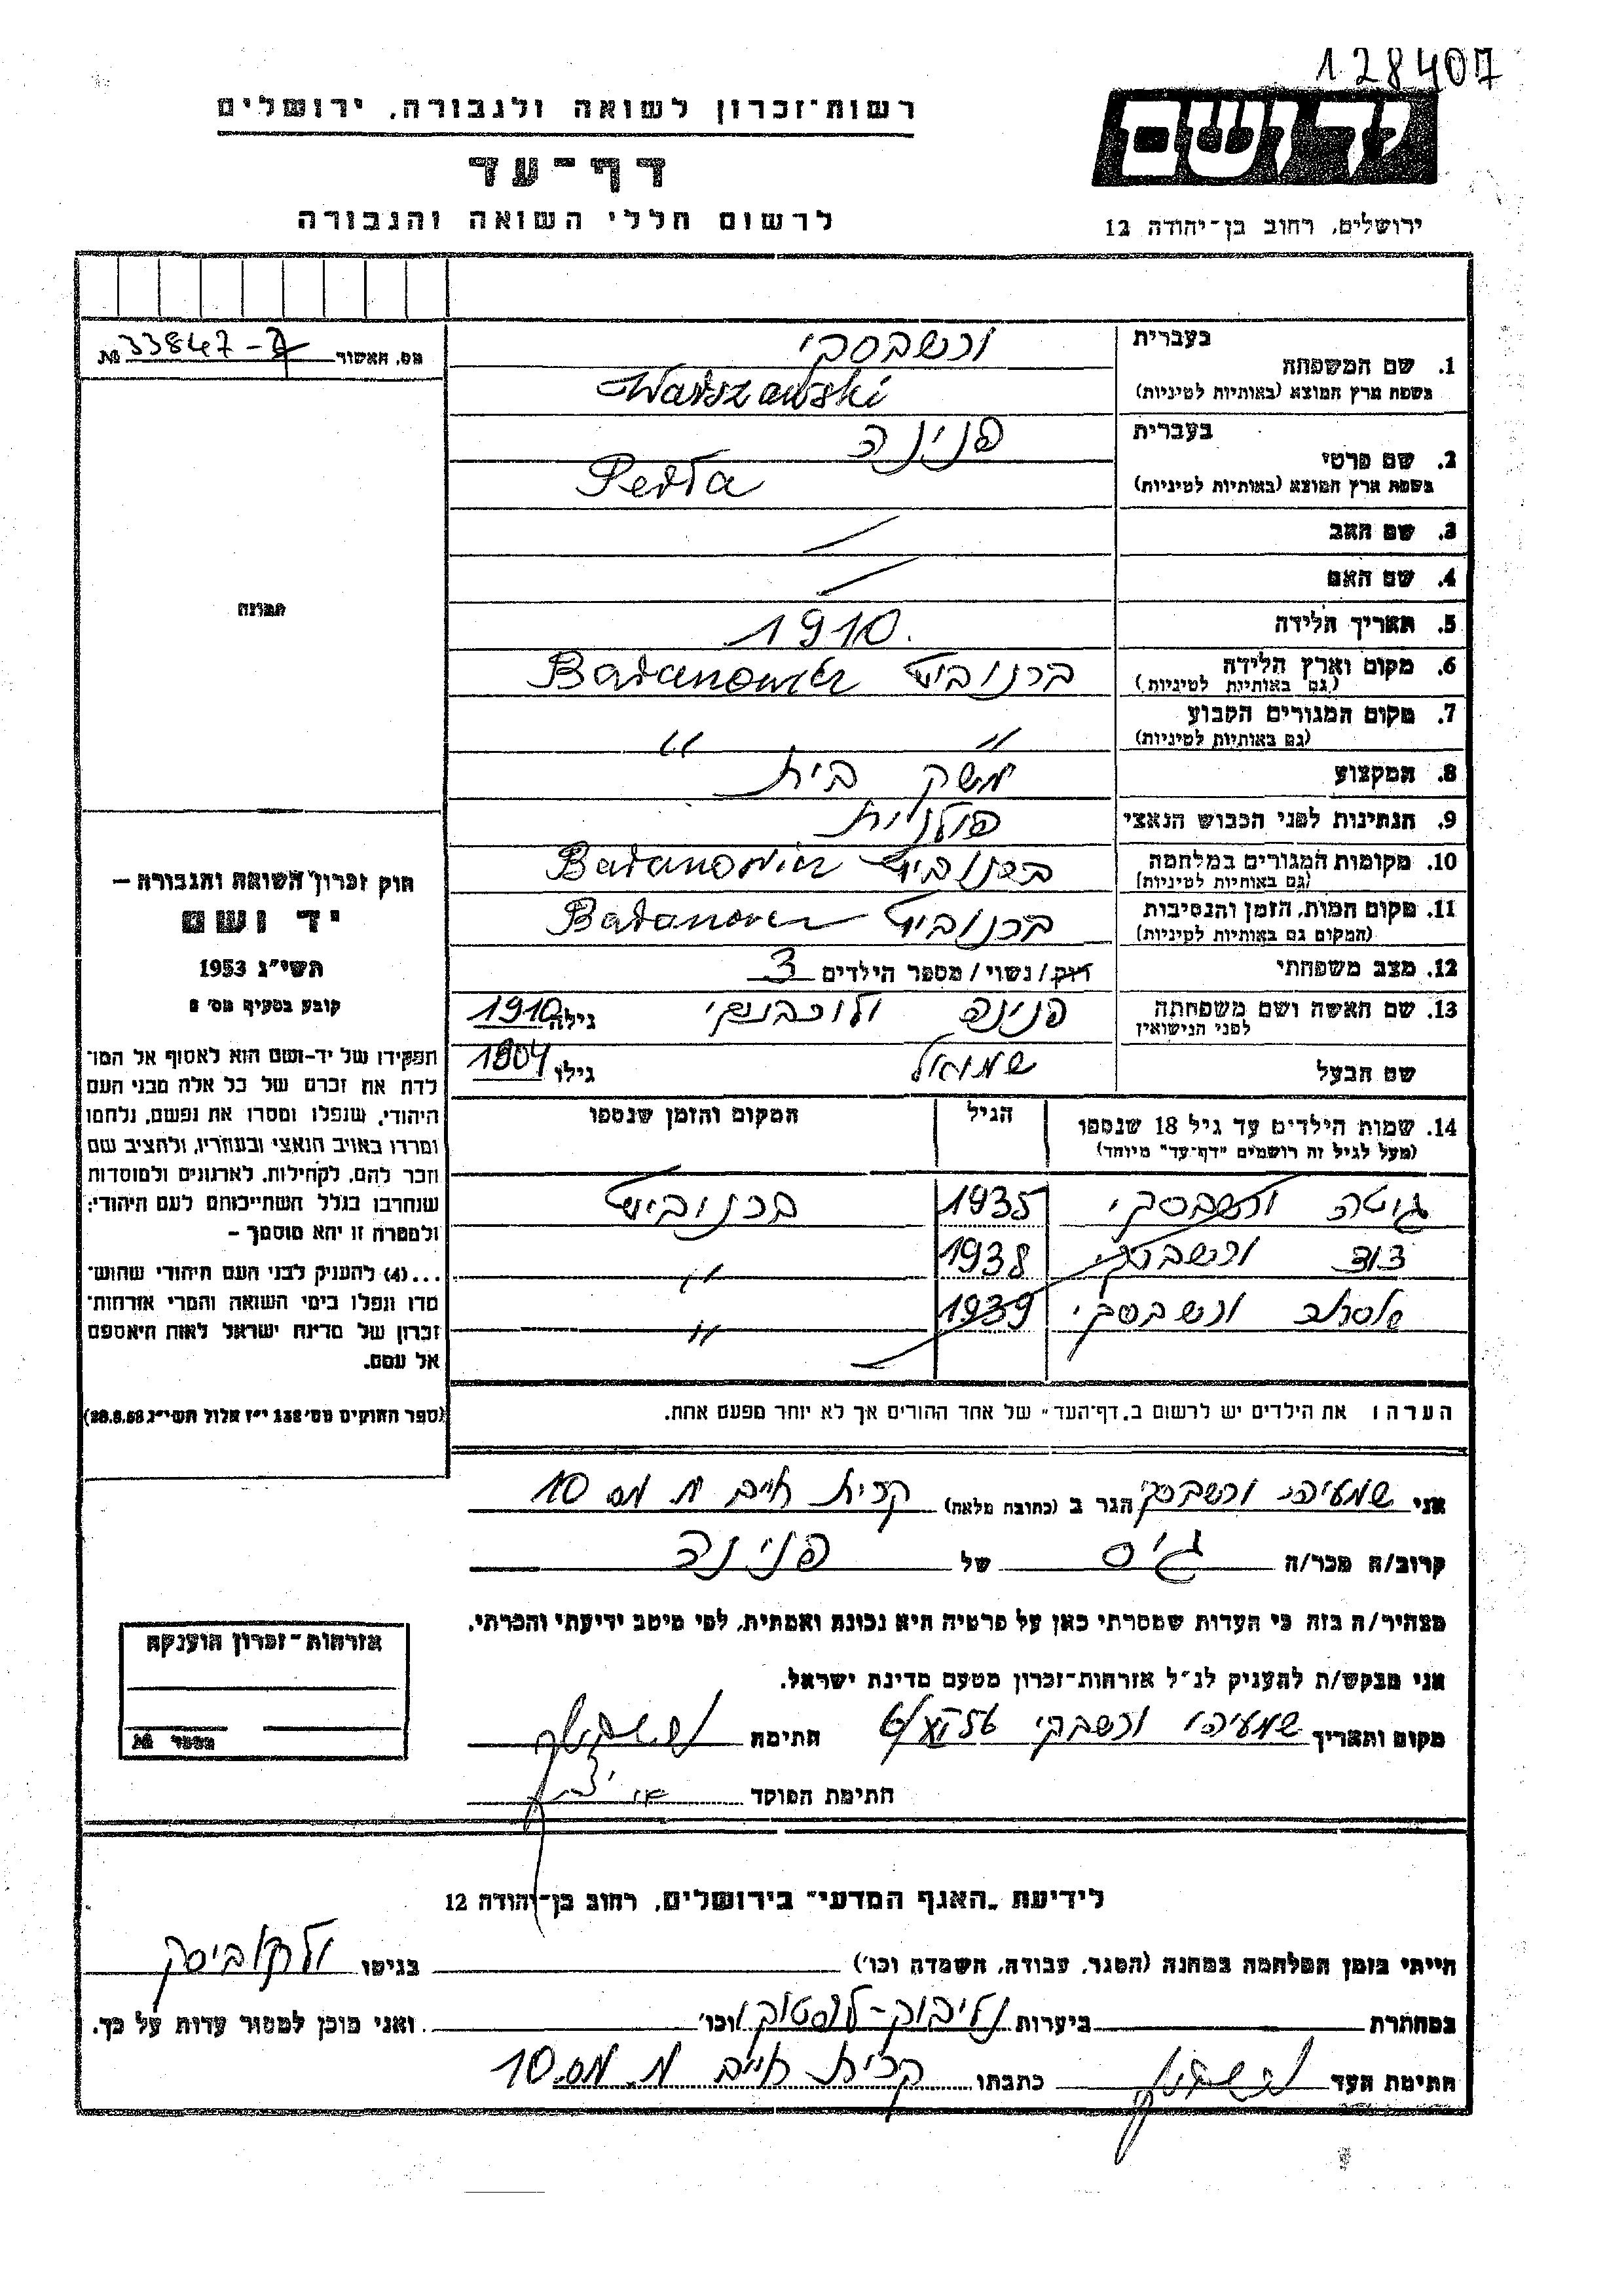 128407
רשות־זכרון לשואה ולגבורה, ירושלים
דף־עד
לרשום חללי השואה והגבורה
יד ושם
ירושלים, רחוב בן־יהודה 12
מס. האשור 33847-7 №
בעברית
ורשבסקי
1. שם המשפחה
בשפת ארץ המוצא (באותיות לטיניות)
Warszawski
בעברית
פנינה
2. שם פרטי
בשפת ארץ המוצא (באותיות לטיניות)
Perla
3. שם האב
4. שם האם
5. תאריך הלידה 1910.
6. מקום וארץ הלידה
(גם באותיות לטיניות)
ברנוביץ Baranowicz
7. מקום המגורים הקבוע
(גם באותיות לטיניות)
" "
8. המקצוע משק בית
9. הנתינות לפני הכבוש הנאצי פולנית
10. מקומות המגורים במלחמה
(גם באותיות לטיניות)
ברנוביץ
11. מקום המות, הזמן והנסיבות
(המקום גם באותיות לטיניות)
ברנוביץ
12. מצב משפחתי רווק/נשוי/מספר הילדים 3
13. שם האשה ושם משפחתה
לפני הנישואין
פנינה גילה 1910
שם הבעל שמואל גילו 1904
14. שמות הילדים עד גיל 18 שנספו
(מעל לגיל זה רושמים "דף־עד" מיוחד)
הגיל
המקום והזמן שנספו
גיטה ורשבסקי 1935 ברנוביץ
דוד ורשבסקי 1938 "
ורשבסקי 1939 "
הערה: את הילדים יש לרשום ב"דף־העד" של אחד ההורים אך לא יותר מפעם אחת.
תמונה
חוק זכרון השואה והגבורה –
יד ושם
תשי"ג 1953
קובע בסעיף מס' 2
תפקידו של יד־ושם הוא לאסוף אל המו־
לדת את זכרם של כל אלה מבני העם
היהודי, שנפלו ומסרו את נפשם, נלחמו
ומרדו באויב הנאצי ובעוזריו, ולהציב שם
וזכר להם, לקהילות, לארגונים ולמוסדות
שנחרבו בגלל השתייכותם לעם היהודי;
ולמטרה זו יהא מוסמך –
...(4) להעניק לבני העם היהודי שהוש־
מדו ונפלו בימי השואה והמרי אזרחות־
זכרון של מדינת ישראל לאות היאספם
אל עמם.
(ספר החוקים מס' 132 י"ז אלול תשי"ג 28.8.53)
אני שמעיהו ורשבסקי הגר ב (כתובת מלאה) קרית חיים מ. מס 10
קרוב/ה מכר/ה גיס של פנינה
מצהיר/ה בזה כי העדות שמסרתי כאן על פרטיה היא נכונה ואמתית, לפי מיטב ידיעתי והכרתי.
אני מבקש/ת להעניק לנ"ל אזרחות־זכרון מטעם מדינת ישראל.
מקום ותאריך שמעיהו ורשבסקי חתימת
חתימת הפוקד
אזרחות־זכרון הוענקה
מספר №
לידיעת "האגף המדעי" בירושלים, רחוב בן־יהודה 12
הייתי בזמן המלחמה במחנה (הסגר, עבודה, השמדה וכו') בגיטו ולקוביסק
במחתרת ביערות וכו' ואני מוכן למסור עדות על כך.
חתימת העד כתבתו קרית חיים מ. מס. 10